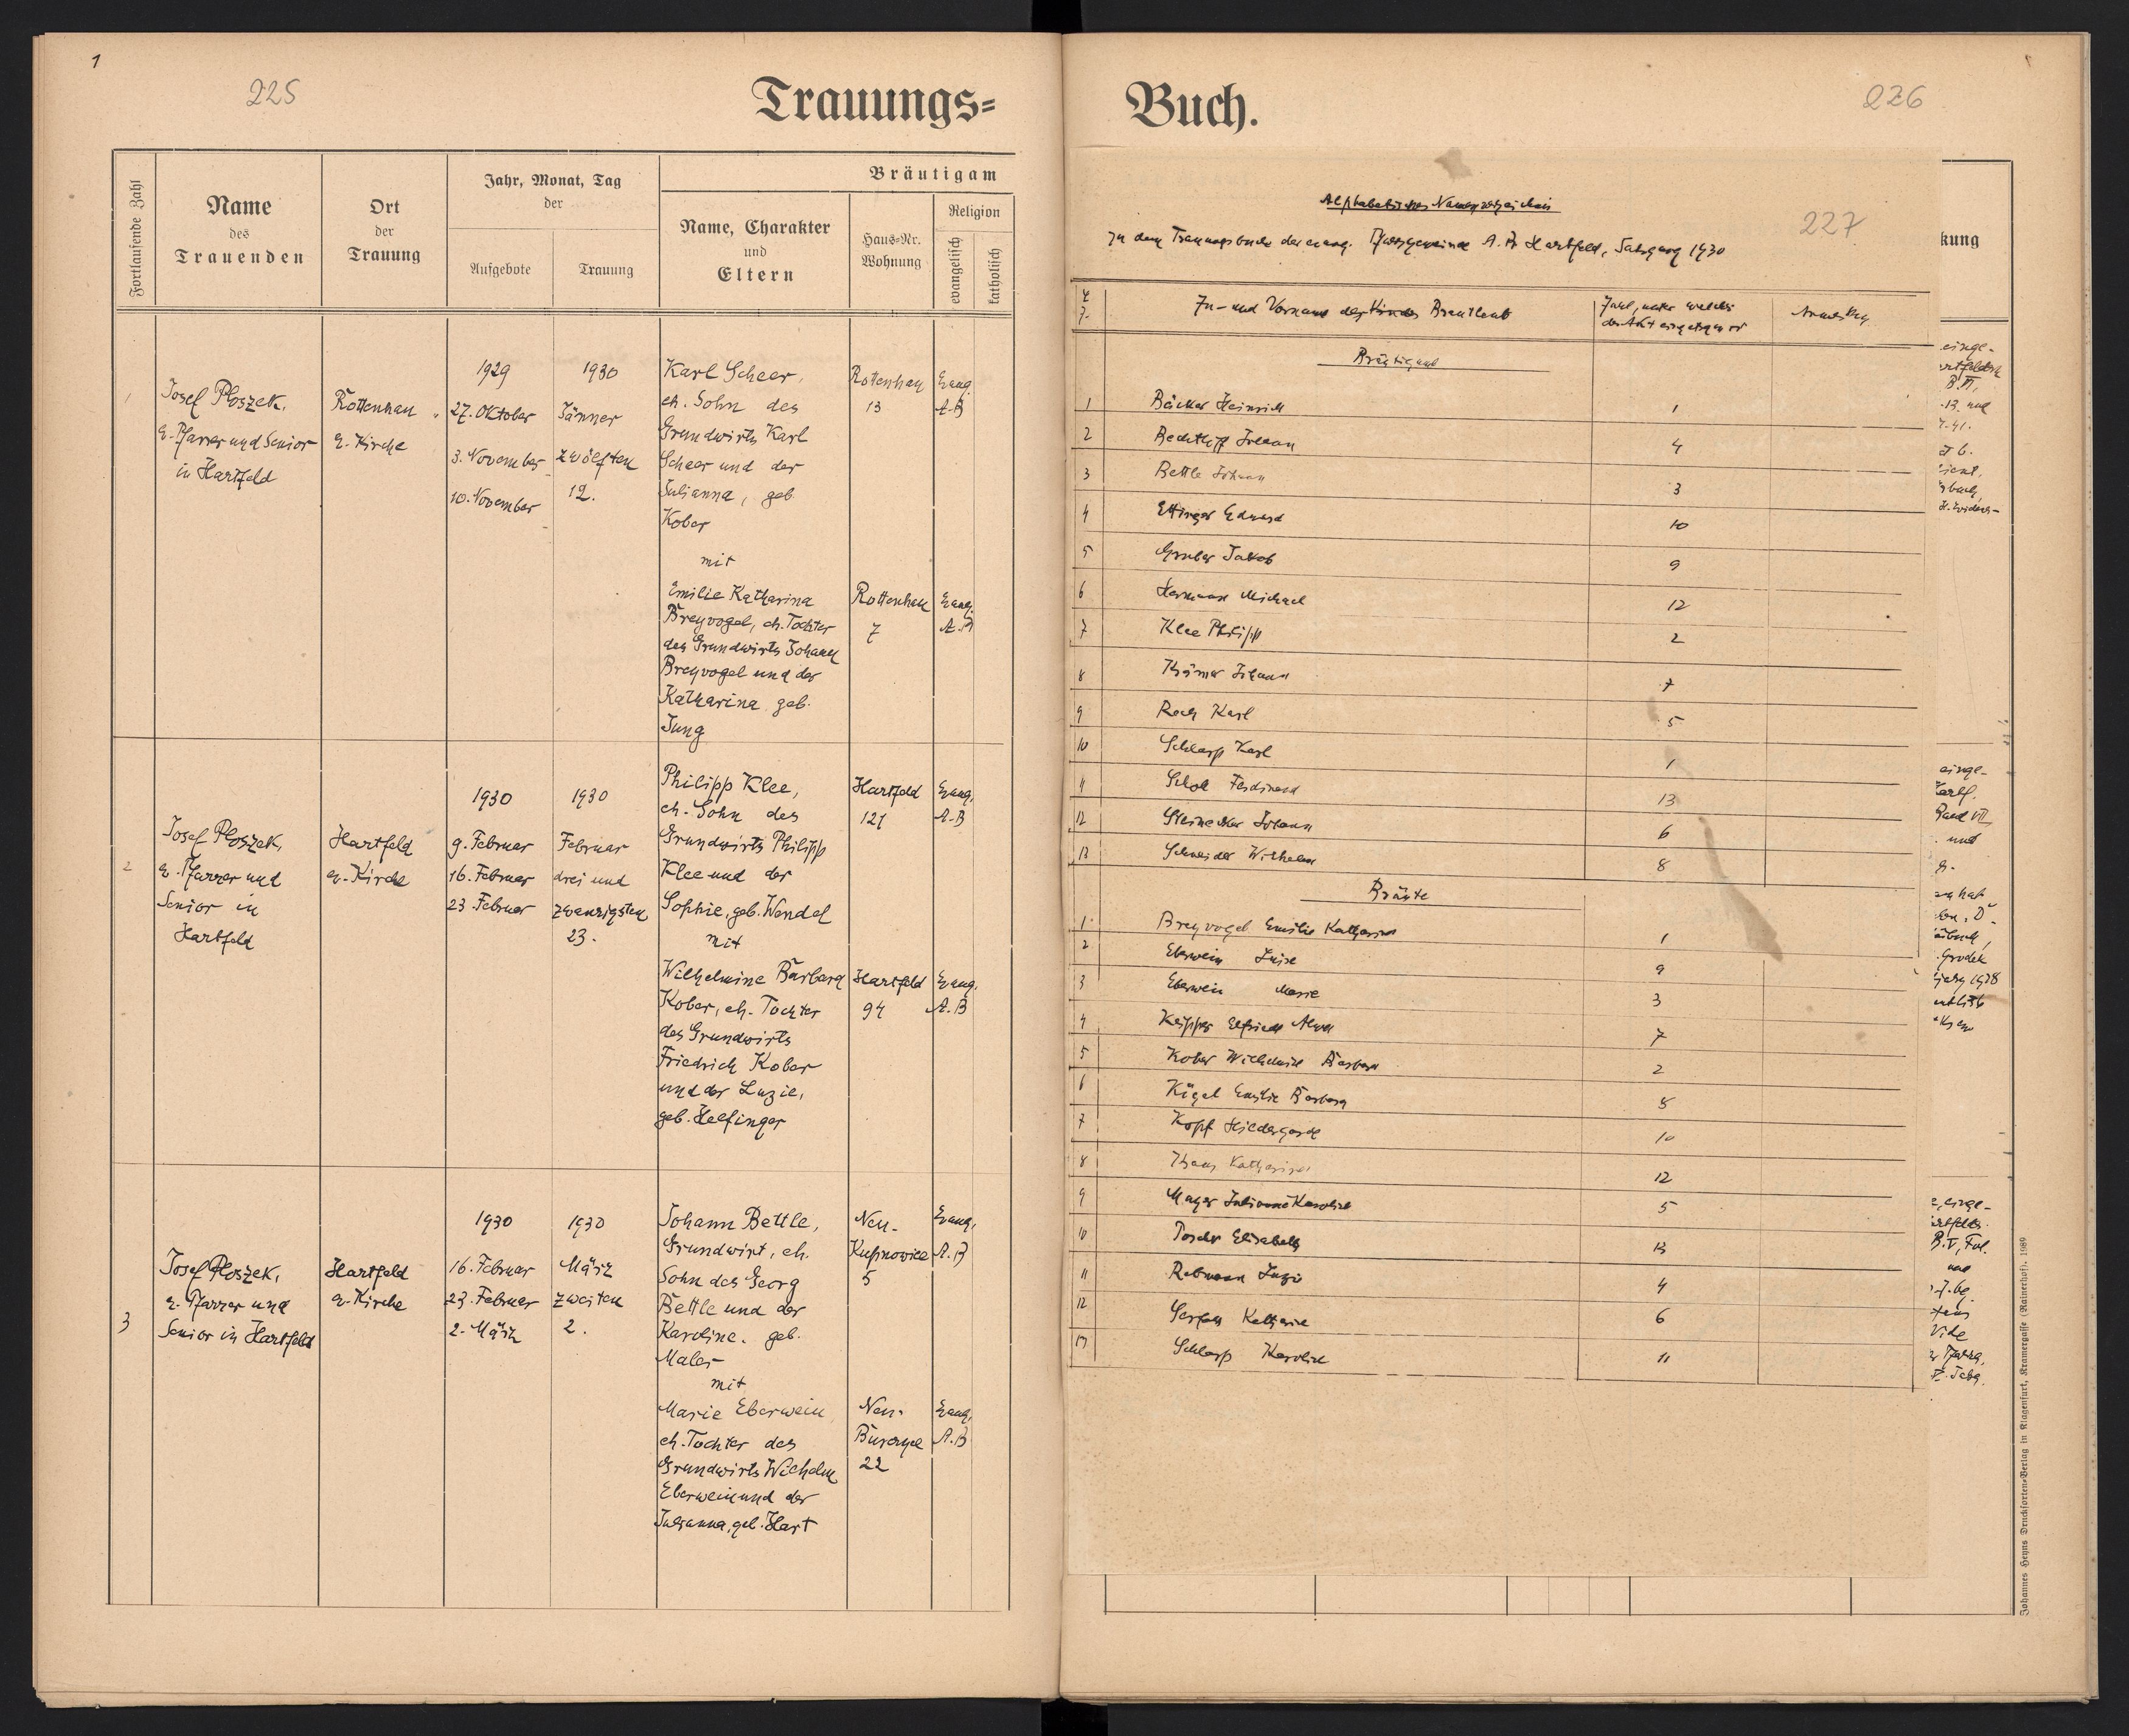 1
225
Trauungs=
Fortlaufende Zahl
Name
des
Trauenden
Ort
der
Trauung
Jahr, Monat, Tag
der
Aufgebote
Trauung
Bräutigam
Name, Charakter
und
Eltern
Haus=Nr.
Wohnung
Religion
evangelisch
katholisch
1
Josef Ploszek,
e. Pfarrer und Senior
in Hartfeld
Rottenhan
e. Kirche
1929
27. Oktober
3. November
10. November
1930
Jänner
zwölften
12.
Karl Scheer,
eh. Sohn des
Grundwirts Karl
Scheer und der
Julianna, geb.
Kober
mit
Emilie Katharina
Breyvogel, eh. Tochter
des Grundwirts Johann
Breyvogel und der
Katharina geb.
Jung
Rottenhan
13
Evang.
A.B
Rottenhan
7
Evang.
A.B
2
Josef Ploszek,
e. Pfarrer und
Senior in
Hartfeld
Hartfeld
e. Kirche
1930
9. Februar
16. Februar
23. Februar
1930
Februar
drei und
zwanzigsten
23.
Philipp Klee,
eh. Sohn des
Grundwirts Philipp
Klee und der
Sophie, geb. Wendel
mit
Wilhelmine Barbara
Kober, eh. Tochter
des Grundwirts
Friedrich Kober
und der Luzie,
geb. Helfinger
Hartfeld
121
Evang.
A.B
Hartfeld
94
Evang.
A.B
3
Josef Ploszek,
e. Pfarrer und
Senior in Hartfeld
Hartfeld
e. Kirche
1930
16. Februar
23. Februar
2. März
1930
März
zweiten
2.
Johann Bettle,
Grundwirt, eh.
Sohn des Georg
Bettle und der
Karoline. geb.
Maler
mit
Marie Eberwein
eh. Tochter des
Grundwirts Wilhelm
Eberwein und der
Julianna, geb. Hart
Neu-
Kupnowice
5
Evang.
A.B
Neu-
Burczyce
22
Evang.
A.B
Buch.
226
kung
Alphabetisches Namensverzeichnis
227
zu dem Trauungsbuche der evang. Pfarrgemeinde A.B Hartfeld, Jahrgang 1930
Zu- und Vorname des Kindes Brautleute
Zahl, unter welcher
der Akt eingetragen ist
Anmerkung
Bräutigame
1 Bäcker Heinrich 1
2 Bechtloff Johann 4
3 Bettle Johann 3
4 Ettinger Eduard 10
5 Gruber Jakob 9
6 Hermann Michael 12
7 Klee Philipp 2
8 Krämer Johann 7
9 Roch Karl 5
10 Schlarp Karl 1
11 Scholl Ferdinand 13
12 Steinecker Johann 6
13 Schneider Wilhelm 8
Bräute
1 Breyvogel Emilie Katharina 1
2 Eberwein Luise 9
3 Eberwein Marie 3
4 Keipper Elfriede Alma 7
5 Kober Wilhelmine Barbara 2
6 Kügel Emilie Barbara 8
7 Kopf Hildegarde 10
8 Kraus Katharina 12
9 Mayer Julianna Karoline 5
10 Elisabeth 13
11 Rebmann Luzie 4
12 Katharina 6
13 Schlarp Karoline 11
Johannes Heyns Drucksorten=Verlag in Klagenfurt, Kramergasse (Rainerhof). 1989